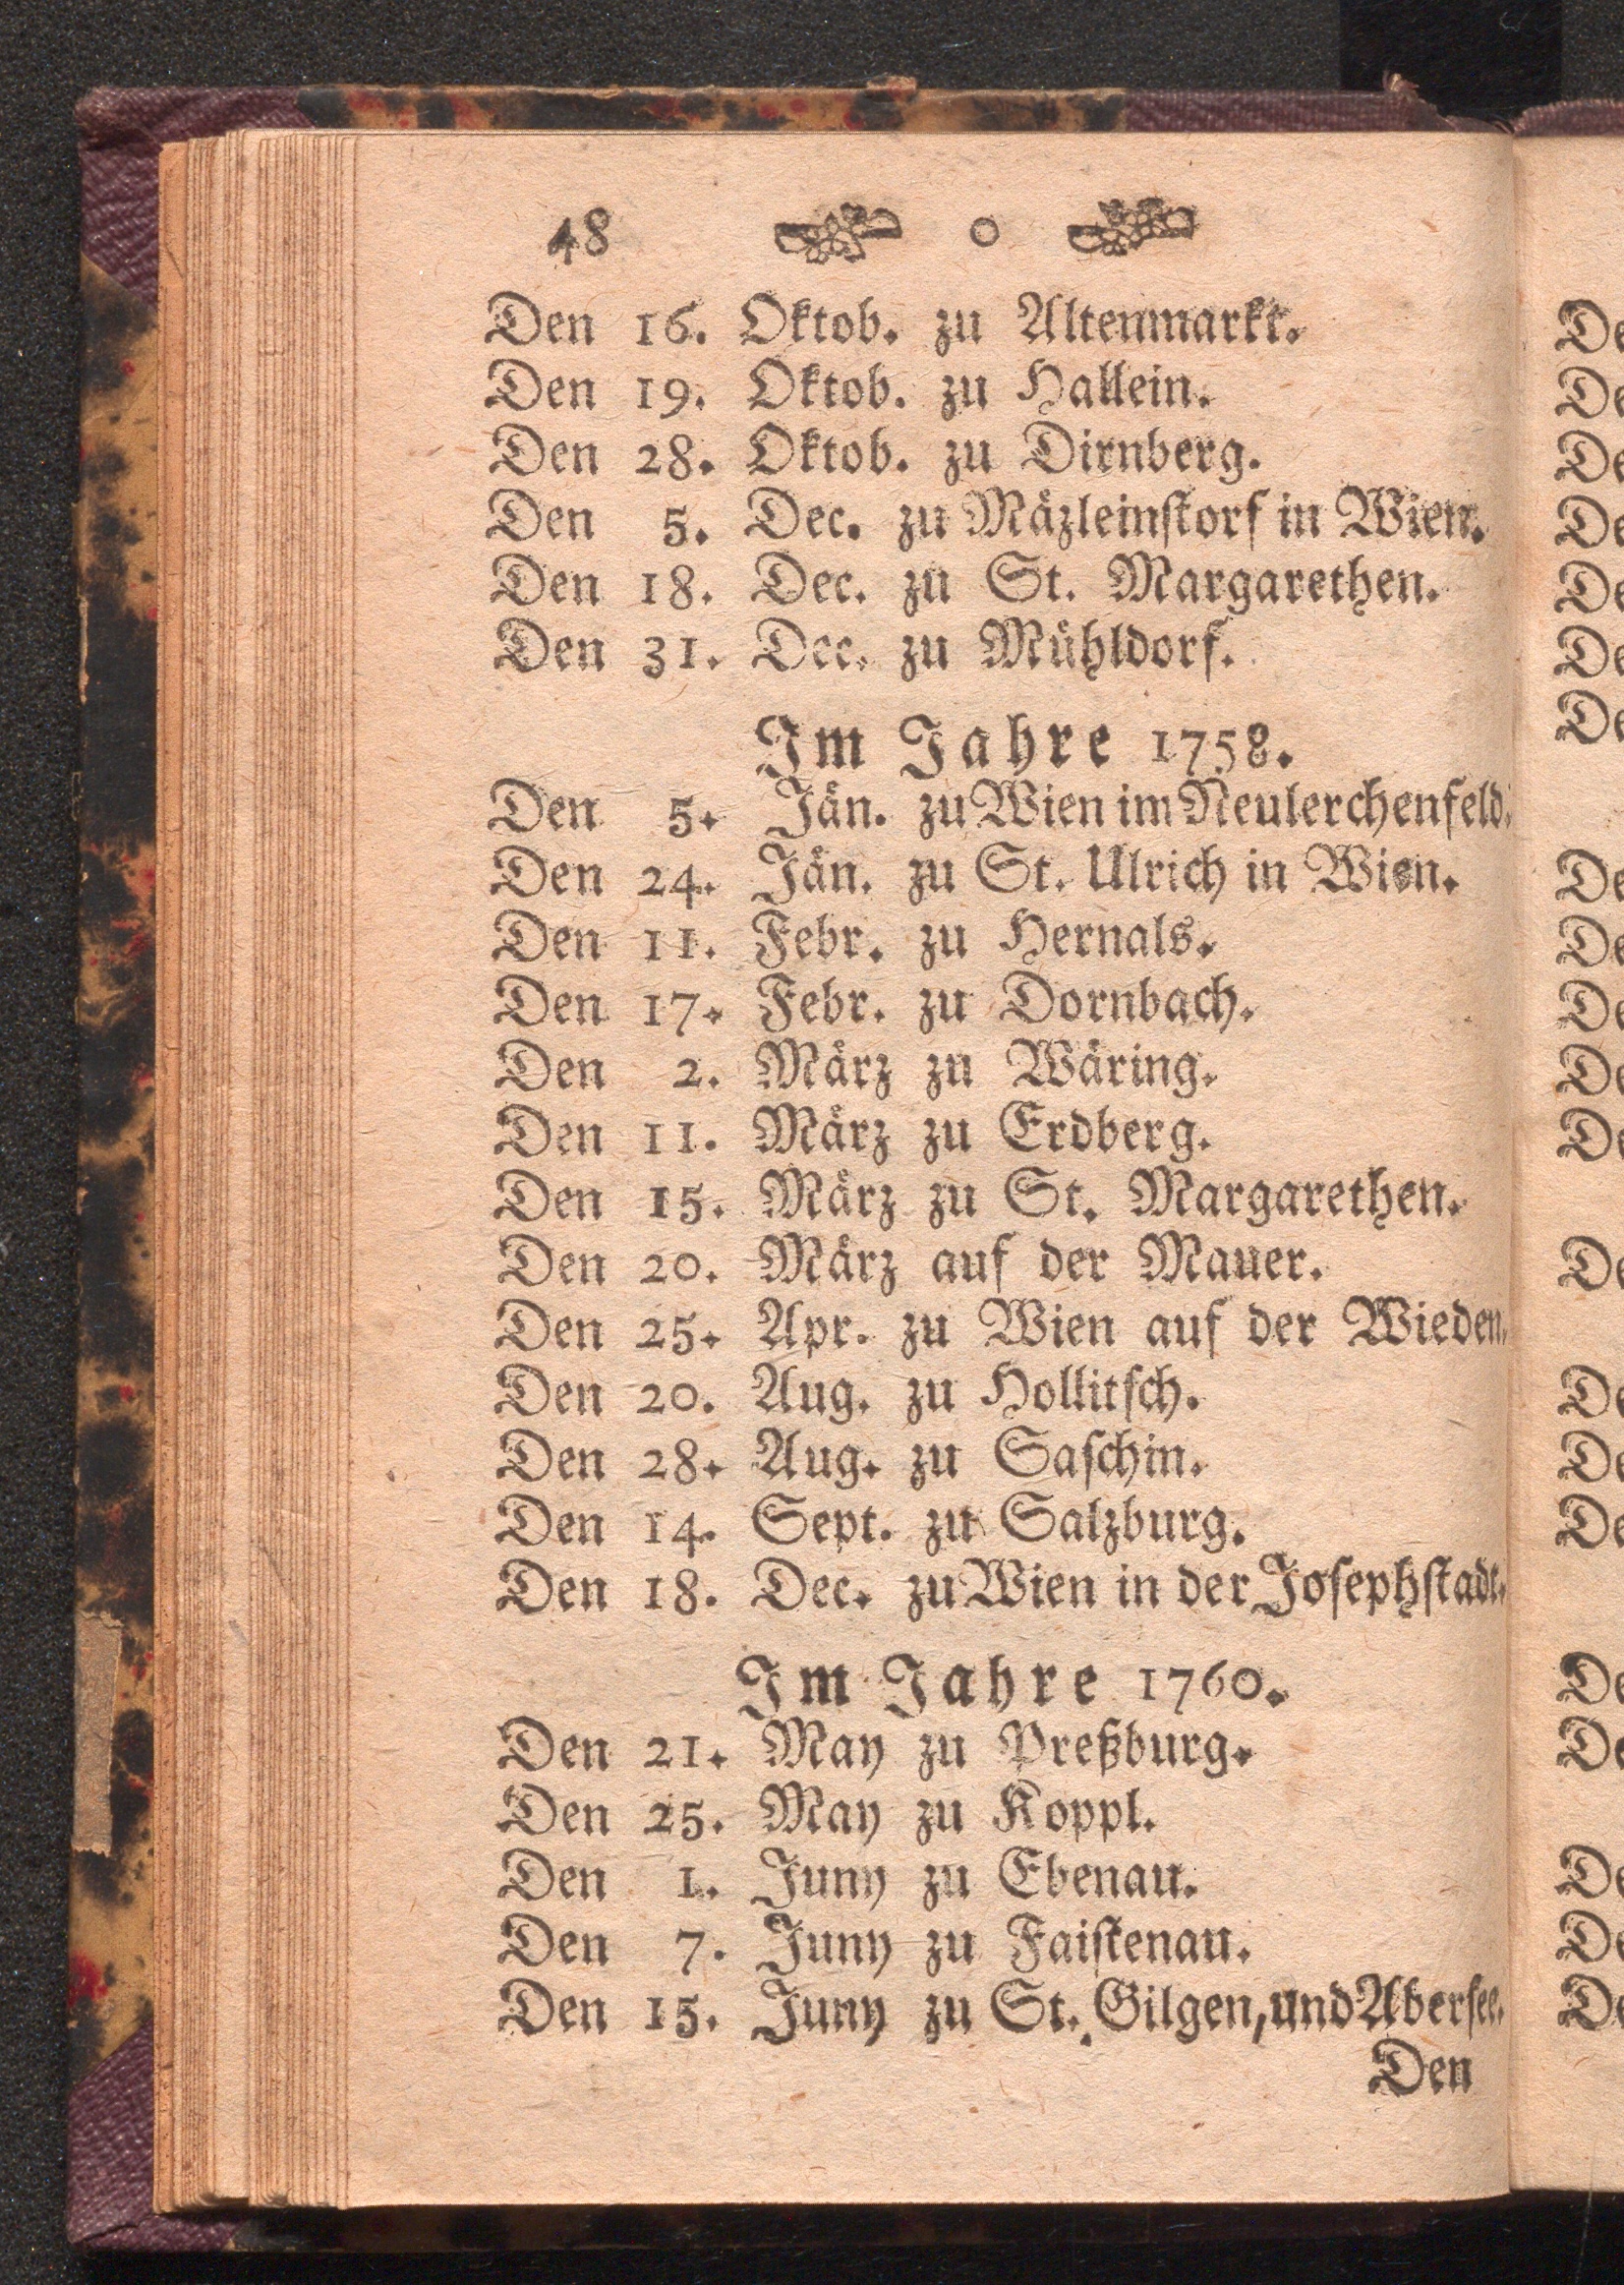 48 o
Den 16. Oktob. zu Altenmarkt.
Den 19. Oktob. zu Hallein.
Den 28. Oktob. zu Dirnberg.
Den 5. Dec. zu Mäzleinſtorf in Wien.
Den 18. Dec. zu St. Margarethen.
Den 31. Dec. zu Mühldorf.
Im Jahre 1758.
Den 5. Jän. zu Wien im Neulerchenfeld.
Den 24. Jän. zu St. Ulrich in Wien.
Den 11. Febr. zu Hernals.
Den 17. Febr. zu Dornbach.
Den 2. März zu Wäring.
Den 11. März zu Erdberg.
Den 15. März zu St. Margarethen.
Den 20. März auf der Mauer.
Den 25. Apr. zu Wien auf der Wieden.
Den 20. Aug. zu Hollitſch.
Den 28. Aug. zu Saſchin.
Den 14. Sept. zu Salzburg.
Den 18. Dec. zu Wien in der Joſephſtadt.
Im Jahre 1760.
Den 21. May zu Preßburg.
Den 25. May zu Koppl.
Den 1. Juny zu Ebenau.
Den 7. Juny zu Faiſtenau.
Den 15. Juny zu St. Gilgen, und Aberſee.
Den